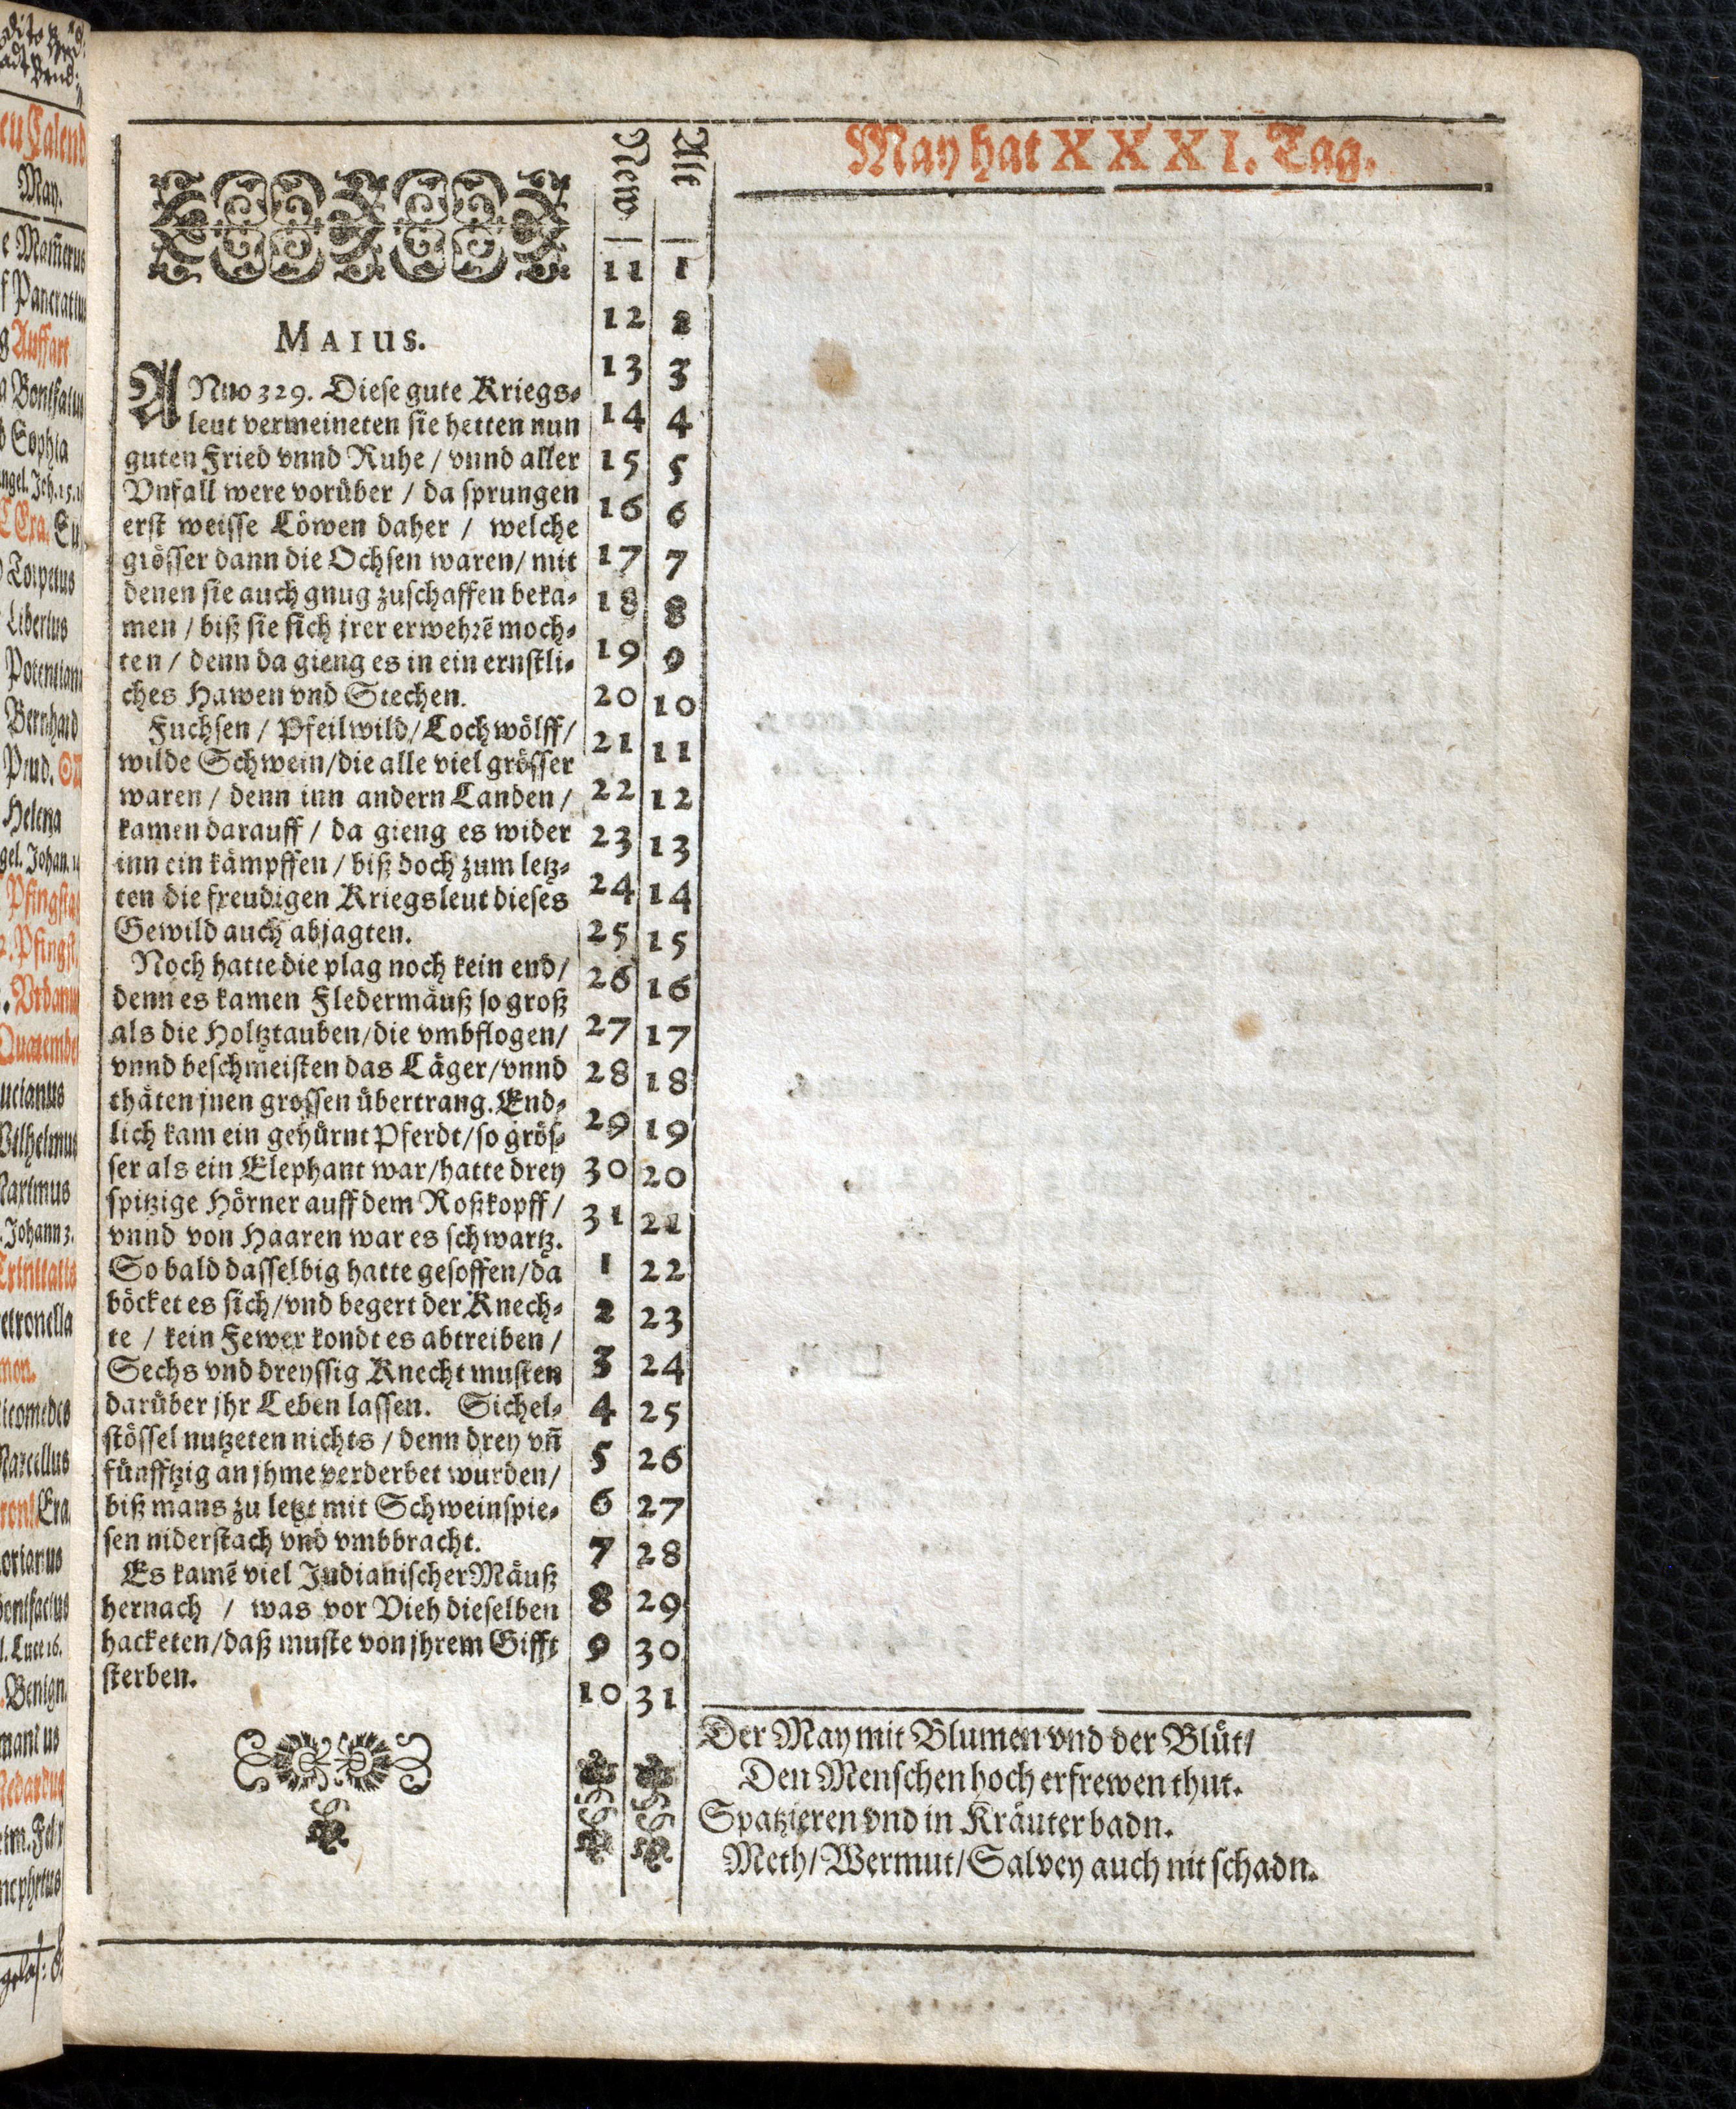 May hat XXXI. Tag.
New
Alt
MAIUS.
ANno 329. Diese gute Kriegs-
leut vermeineten sie hetten nun
guten Fried vnnd Ruhe / vnnd aller
Vnfall were vorüber / da sprungen
erst weisse Löwen daher / welche
grösser dann die Ochsen waren / mit
denen sie auch gnug zuschaffen beka-
men / biß sie sich jrer erwehrẽ moch-
ten / denn da gieng es in ein ernstli-
ches Hawen vnd Stechen.
Fuchsen / Pfeilwild / Lochwölff /
wilde Schwein / die alle viel grösser
waren / denn inn andern Landen /
kamen darauff / da gieng es wider
inn ein kämpffen / biß doch zum letz-
ten die freudigen Kriegsleut dieses
Gewild auch abjagten.
Noch hatte die plag noch kein end /
denn es kamen Fledermäuß so groß
als die Holtztauben / die vmbflogen /
vnnd beschmeisten das Läger / vnnd
thäten jnen grossen übertrang. End-
lich kam ein gehürnt Pferdt / so grös-
ser als ein Elephant war / hatte drey
spitzige Hörner auff dem Roßkopff /
vnnd von Haaren war es schwartz.
So bald dasselbig hatte gesoffen / da
böcket es sich / vnd begert der Knech-
te / kein Fewer kondt es abtreiben /
Sechs vnd dreyssig Knecht musten
darüber jhr Leben lassen. Sichel-
stössel nutzeten nichts / denn drey vñ
fünfftzig an jhme verderbet wurden /
biß mans zu letzt mit Schweinspie-
sen niderstach vnd vmbbracht.
Es kamẽ viel Indianischer Mäuß
hernach / was vor Vieh dieselben
hacketen / daß muste von jhrem Gifft
sterben.
11 1
12 2
13 3
14 4
15 5
16 6
17 7
18 8
19 9
20 10
21 11
22 12
23 13
24 14
25 15
26 16
27 17
28 18
29 19
30 20
31 21
1 22
2 23
3 24
4 25
5 26
6 27
7 28
8 29
9 30
10 31
Der May mit Blumen vnd der Blüt /
Den Menschen hoch erfrewen thut.
Spatzieren vnd in Kräuter badn.
Meth / Wermut / Salvey auch nit schadn.